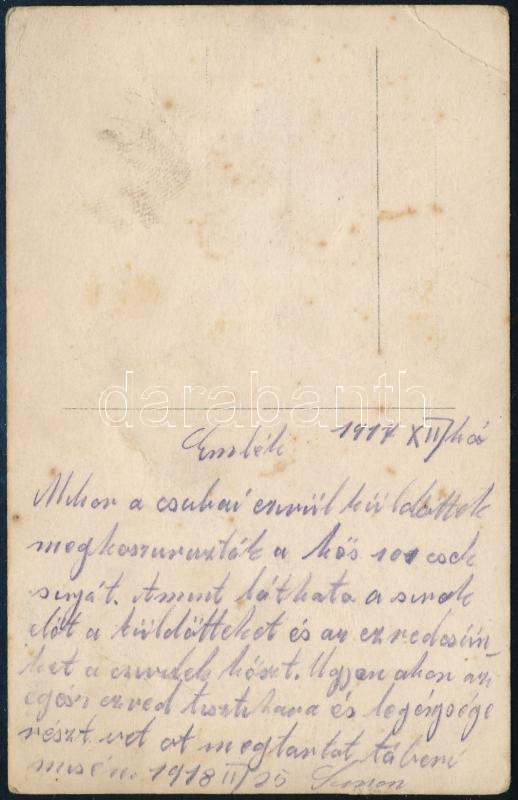 darabanth
Emlék 1917 XII/hó
Mikor a csabai küldöttek
megkoszuruzták a hős 101 esek
sirját. Amint látható a sirok
előt a küldötteket és az ezredesün-
ket a hőszt. Ugyan akor az
egész ezred tisztikara és legénysége
részt vet ot megtartot tábori
misén. 1918 II/25 Simon